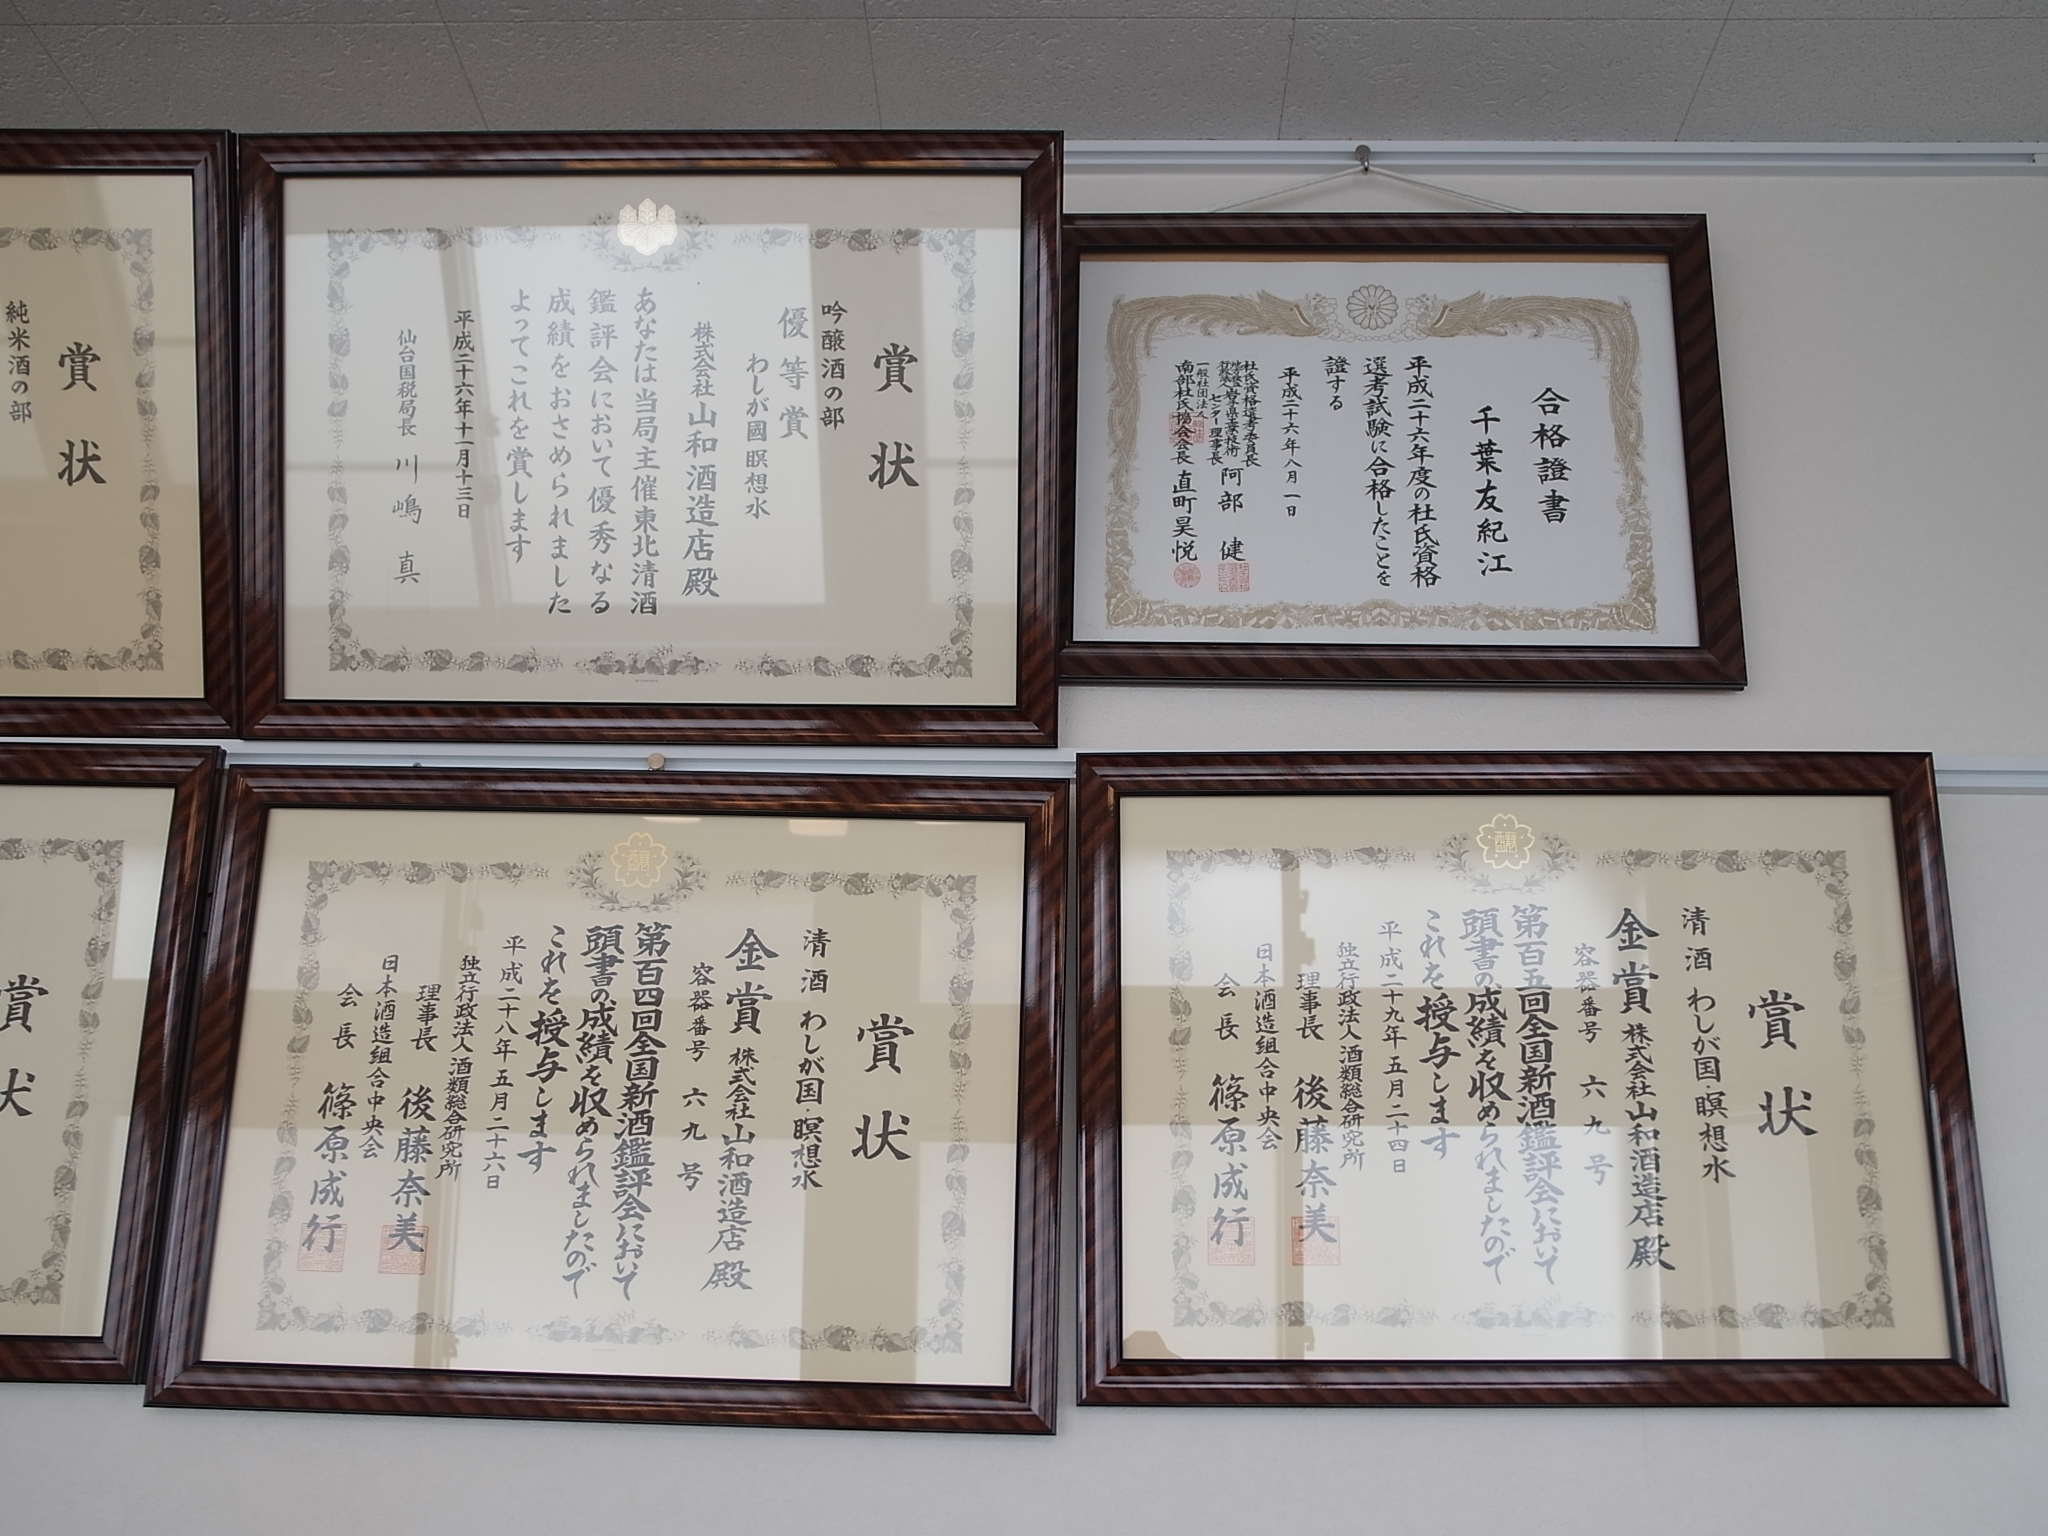 賞状
純米酒の部
賞状
吟醸酒の部
優等賞
わしが國 瞑想水
株式会社 山和酒造店殿
あなたは当局主催東北清酒
鑑評会において優秀なる
成績をおさめられました
よってこれを賞します
平成二十六年十一月十三日
仙台国税局長 川嶋真
合格證書
千葉友紀江
平成二十六年度の杜氏資格
選考試験に合格したことを
證する
平成二十六年八月一日
杜氏資格選考委員長
センター理事長 阿部健
一般社団法人
南部杜氏協会会長 直町昊悦
賞状
賞状
清酒 わしが国・瞑想水
金賞 株式会社山和酒造店殿
容器番号 六九号
第百四回全国新酒鑑評会において
頭書の成績を収められましたので
これを授与します
平成二十八年五月二十六日
独立行政法人 酒類総合研究所
理事長 後藤奈美
日本酒造組合中央会
会長 篠原成行
賞状
清酒 わしが国・瞑想水
金賞 株式会社山和酒造店殿
容器番号 六九号
第百五回全国新酒鑑評会において
頭書の成績を収められましたので
これを授与します
平成二十九年五月二十四日
独立行政法人 酒類総合研究所
理事長 後藤奈美
日本酒造組合中央会
会長 篠原成行